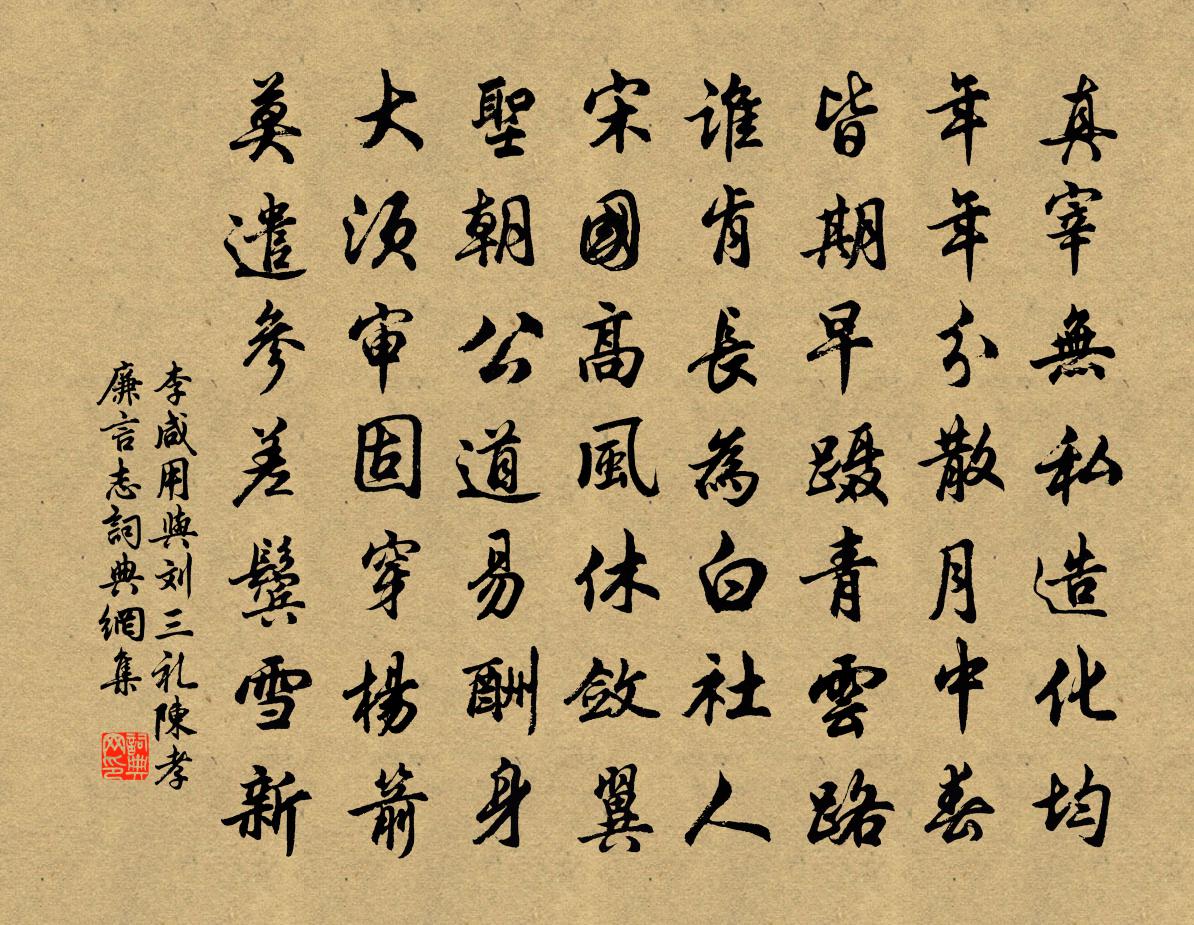 真宰無私造化均
年年分散月中春
皆期早蹑青雲路
誰肯長為白社人
宋國高風休斂翼
聖朝公道易酬身
大須审固穿楊箭
莫遣參差鬓雪新
李咸用與刘三礼陳孝
廉言志詞典網集
詞典网印